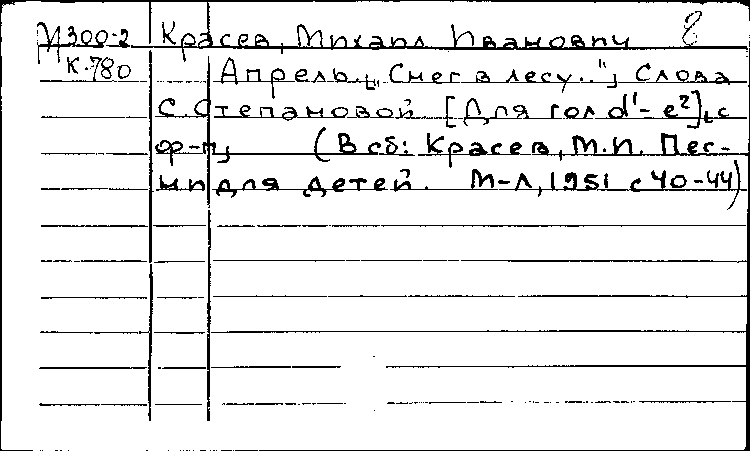 М300-2 Красев, Михаил Иванович 8
К-780 Апрель. ["Снег в лесу.."] Слова
С. Степановой [Для гол d¹-e²] [с
ф-п] (В сб: Красев, М.И. Пес-
ни для детей. М-Л, 1951 с 40-44)